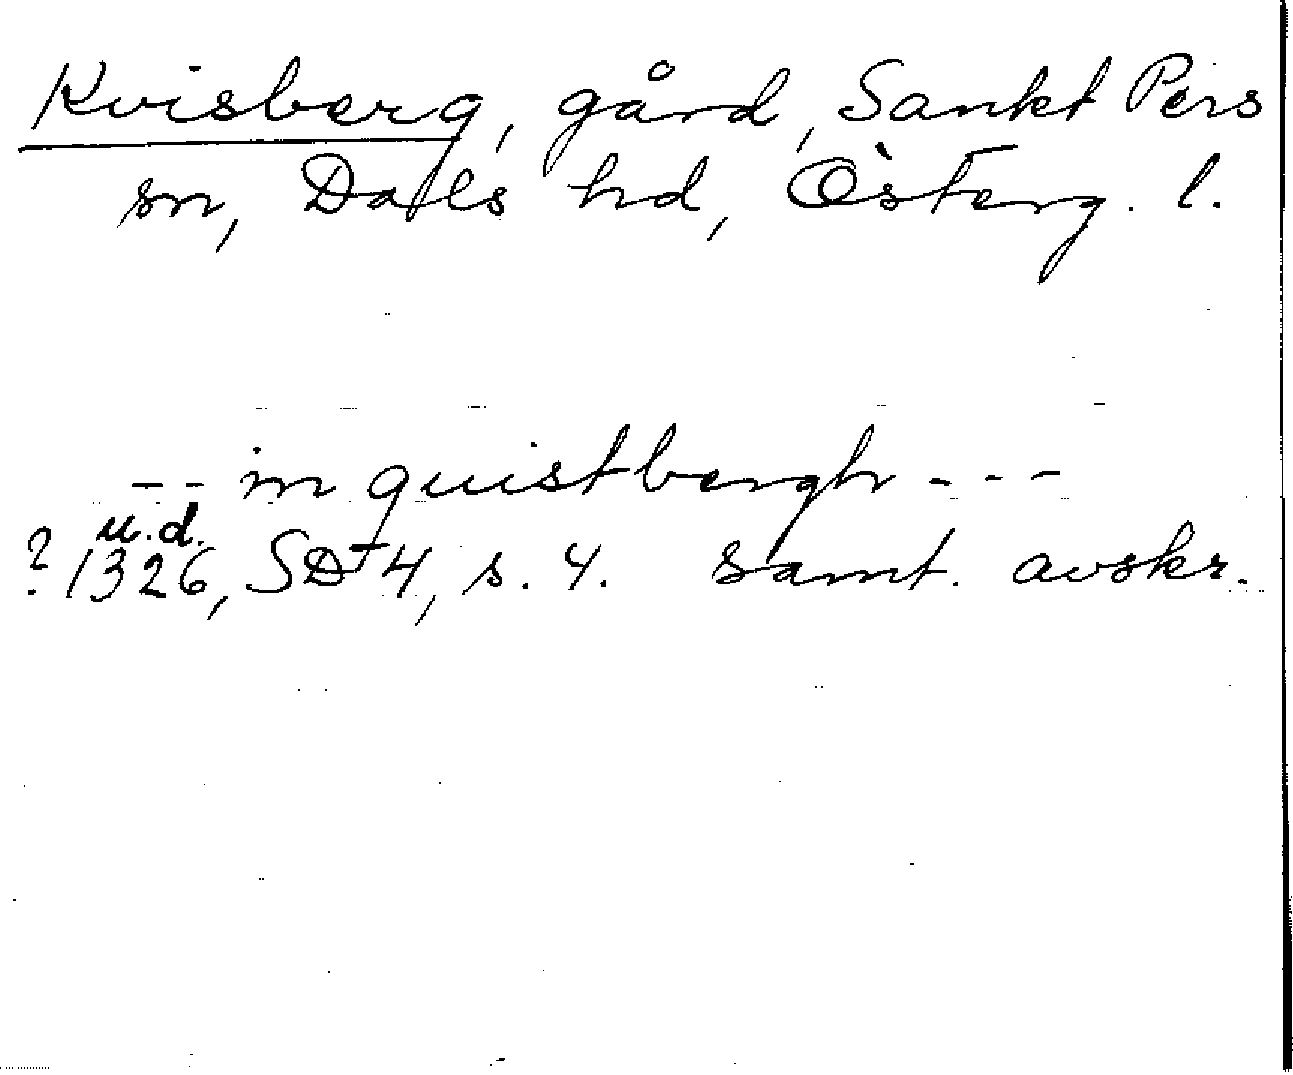 Kvisberg, gård, Sankt Pers
sn, Dals hd, Österg. l.
-- in quistbergh ---
u.d.
? 1326, SD 4, s. 4. Samt. avskr.